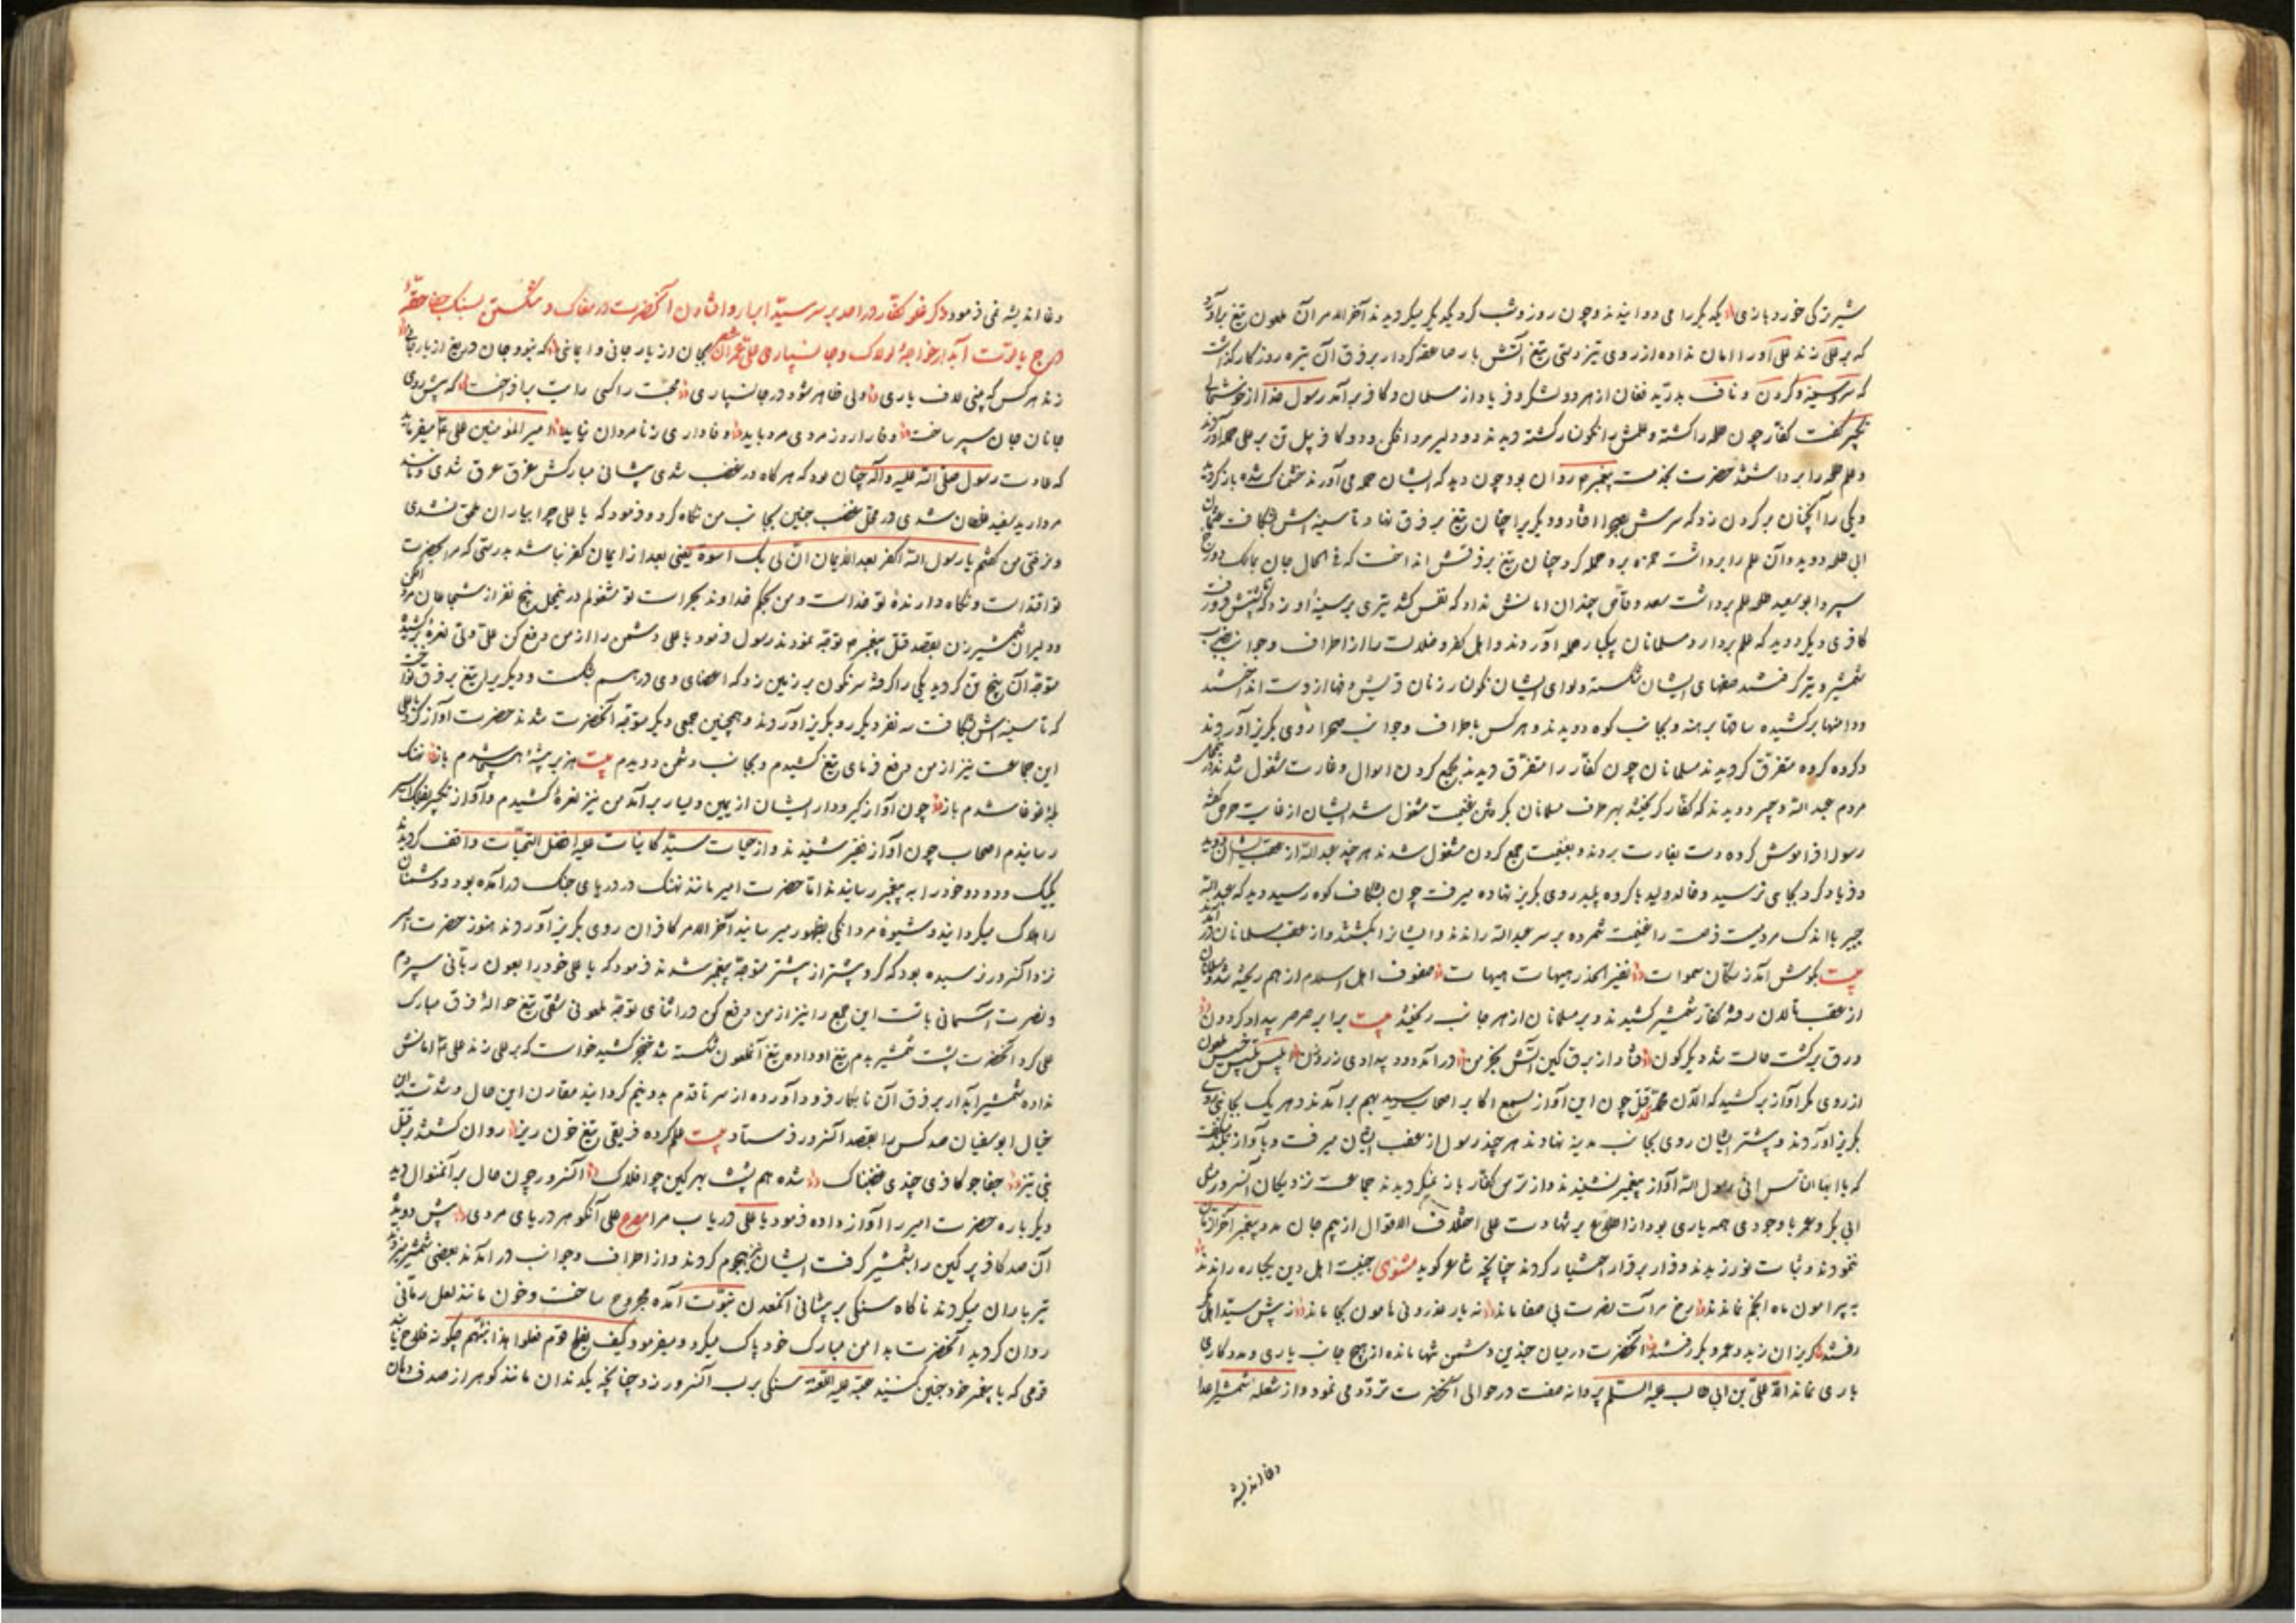 که بر علی زند علی او را امان نداده از روی تیز دستی تیغ آتش بار صاعقه کردار بر فرق آن تیره روزگار گذاشت
که سر و سینه و گردن و ناف بدرید فغان از هر دو لشکر و فریاد از مسلمان و کافر برآمد رسول خدا از خوشحالی
تکبیر گفت کفار چون طلحه را کشته و علمش را نگونسار گشته دیدند دو دلیر مرد افکن و دو کافر پیل تن بر علی حمله آوردند
و علم طلحه را برداشتند حضرت بخدمت پیغمبر روان بود چون دید که ایشان حمله می آورند خشمناک شده باز گردید
و یکی را آنچنان بر گردن زد که سرش افتاد و دیگریرا چنان تیغ بر فرق نهاد تا سینه اش شکافت عثمان
ابی طلحه دوید و آن علم را برداشت حمزه برو حمله کرد چنان تیغ بر فرقش انداخت که فی الحال جان بمالک دوزخ
سپرد ابو سعید طلحه علم برداشت سعد وقاص چندان امانش نداد که نفس کشد تیری بر سینه او زد
کافری دیگر دوید که علم بردارد مسلمانان بیکبار حمله آوردند و اهل کفر و ضلالت را از اطراف و جوانب بضرب
شمشیر و تیر گرفتند صفهای ایشان شکسته و لوای ایشان نگونسار زنان قریش دفها از دست انداختند
و دامنها برکشیده ساقها برهنه و بجانب کوه دویدند و هر کس باطراف و جوانب صحرا روی بگریز آوردند
و گروه گروه متفرق گردیدند مسلمانان چون کفار را متفرق دیدند بجمع کردن اموال و غارت مشغول شدند
مردم عبد الله جبیر دیدند که کفار گریخته بهر طرف مسلمانان بگرفتن غنیمت مشغول شدند ایشان از غایت حرص گفته
رسول را فراموش کرده دست بغارت بردند و بغنیمت جمع کردن مشغول شدند هر چند عبد الله از عقب ایشان دوید
و فریاد کرد بجایی نرسید و خالد ولید با گروه پلید روی بگریز نهاده میرفت چون بشکاف کوه رسید دید که عبد الله
جبیر با اندک مردیست فرصت را غنیمت شمرده بر سر عبد الله راندند و ایشانرا بکشتند و از عقب مسلمانان در آمدند
بیت بگوش آمد ز سکان سموات نفیر الحذر هیهات هیهات صفوف اهل اسلام از هم ریخته شد
از عقب تالان رفته کفار شمشیر کشیدند و بر مسلمانان از هر جانب ریختند بیت برابر صرصر بیداد گردون
ورق برگشت حالت شد دیگرگون فتاد از برق کین آتش بخرمن
از روی مکر آواز برکشید که الا ان محمد قد قتل چون این آواز بسمع اکابر اصحاب رسید بهم برآمدند و هر یک بجانبی روی
بگریز آوردند و بیشتر ایشان روی بجانب مدینه نهادند هر چند رسول از عقب ایشان میرفت و بآواز بلند میگفت
که یا ایها الناس انی رسول الله آواز پیغمبر نشنیدند و از ترس کفار باز نمیگردیدند جماعت نزدیکان آن سرور مثل
ابی بکر و عمر با وجودی همه یاری بود از اطلاع بر شهادت علی اختلاف الاقوال از بیم جان مدد پیغمبر آخر الزمان
ننمودند و ثبات نورزیدند و فرار بر قرار اختیار کردند چنانچه شاعر گوید مثنوی جنیبت اهل دین یکباره راندند
به پیرامون ماه انجم نماندند رخ مرآت نصرت بی صفا ماند نه یار اندرونی نامون بجا ماند ز پیش سید
رفتند گریزان زید و عمرو و بکر رفتند آنحضرت در میان چندین دشمن تنها مانده از هیچ جانب یاری و مددکاری
یاری نماند الا علی بن ابی طالب علیه السلام پروانه صفت در حوالی آنحضرت تردد می نمود و از شعله شمشیر اعدا
دغا اندیشه
دغا اندیشه نمی فرمود ذکر غلو کفار در احد بر سر سید ابرار و افتادن آنحضرت در مغاک و شکستن بسنگ جفا حقه
درج یاقوت آبدار خواجه لولاک و جانسپاری علی عمران
زند هر کس که بینی لاف یاری ولی ظاهر شود در جانسپاری محبت را کسی رایت برافراخت که پیش روی
جانان جان سپر ساخت وفا را روز مردی مرد باید وفاداری ز نامردان نیاید امیر المؤمنین علی میفرماید
که عادت رسول صلی الله علیه و آله چنان بود که هر گاه در غضب شدی پیشانی مبارکش غرق عرق شدی
مروارید سفید غلطان شدی در محل غضب چنین بجانب من نگاه کرد و فرمود که یا علی چرا بیاران ملحق نشدی
و نرفتی من گفتم یا رسول الله اکفر بعد الایمان ان لی بک اسوة یعنی بعد از ایمان کفر نباشد بدرستی که مرا بحضرت
تو اقتداست و نگاه دارنده تو خداست و من بحکم خداوند بحراست تو مشغولم در این محل پنج نفر از شجاعان مرد افکن
و دلیران شمشیر زن بقصد قتل پیغمبر توجه نمودند رسول فرمود یا علی دشمن را از من دفع کن علی ولی نعره برکشید
متوجه آن پنج تن گردید یکی را گرفته سرنگون بر زمین زد که اعضای وی در هم شکست و دیگریرا تیغ بر فرق نواخت
که تا سینه اش شکافت سه نفر دیگر رو بگریز آوردند و همچنین جمعی دیگر متوجه آنحضرت شدند حضرت آواز کرد که یا علی
این جماعت نیز از من دفع فرمای تیغ کشیدم و بجانب دشمن دویدم بیت هژبر بیشه هیجا شدم باز نهنگ
لجه غوغا شدم باز چون آواز گیر و دار ایشان از یمین و یسار برآمد من نیز نعره کشیدم و آواز تکبیر بفلک اثیر
رسانیدم اصحاب چون آواز نفیر شنیدند و از حیات سید کاینات علیه افضل التحیات واقف گردیدند
یک یک و دو دو خود را به پیغمبر رسانیدند اما حضرت امیر مانند نهنگ در دریای جنگ درآمده بود و دشمنان
را هلاک میگردانید و شیوه مردانگی بظهور میرسانید آخر الامر کافران روی بگریز آوردند هنوز حضرت امیر
نزد آن سرور نرسیده بود که گروه بیشتر از پیشتر متوجه پیغمبر شدند فرمود که یا علی خود را بعون ربانی سپردم
و نصرت آسمانی با تست این جمع را نیز از من دفع کن در اثنای توجه ملعونی شقی تیغ حواله فرق مبارک
علی کرد آنحضرت پشت شمشیر بدم تیغ او داده تیغ آن ملعون شکسته شد خنجر کشید خواست که بر علی زند علی امانش
نداده شمشیر آبدار بر فرق آن نابکار فرود آورده از سر تا قدم بدو نیم گردانید مقارن این حال
ابو سفیان صد کس را بقصد آن سرور فرستاد بیت علم کرده فریقی تیغ خون ریز روان گشتند بر قتل
نبی تیز جفا جو کافری چندی غضبناک شده هم پشت بهر کین چو افلاک آن سرور چون حال بر آن منوال دید
دیگر باره حضرت امیر را آواز داده فرمود یا علی دریاب مرا مصرع علی آن گوهر دریای مردی پیش دوید
آن صد کافر پر کین را بشمشیر گرفت ایشان نیز هجوم کردند و از اطراف و جوانب درآمدند بعضی شمشیر میزدند
تیر باران میکردند ناگاه سنگی بر پیشانی آن معدن نبوت آمده مجروح ساخت و خون مانند لعل رمانی
روان گردید آنحضرت بدامن مبارک خود پاک میکرد و میفرمود کیف یفلح قوم فعلوا هذا بنبیهم چگونه فلاح یابند
قومی که با پیغمبر خود چنین کنند عتبه علیه اللعنة سنگی بر لب آن سرور زد چنانچه یکدندان مانند گوهر از صدف دهان